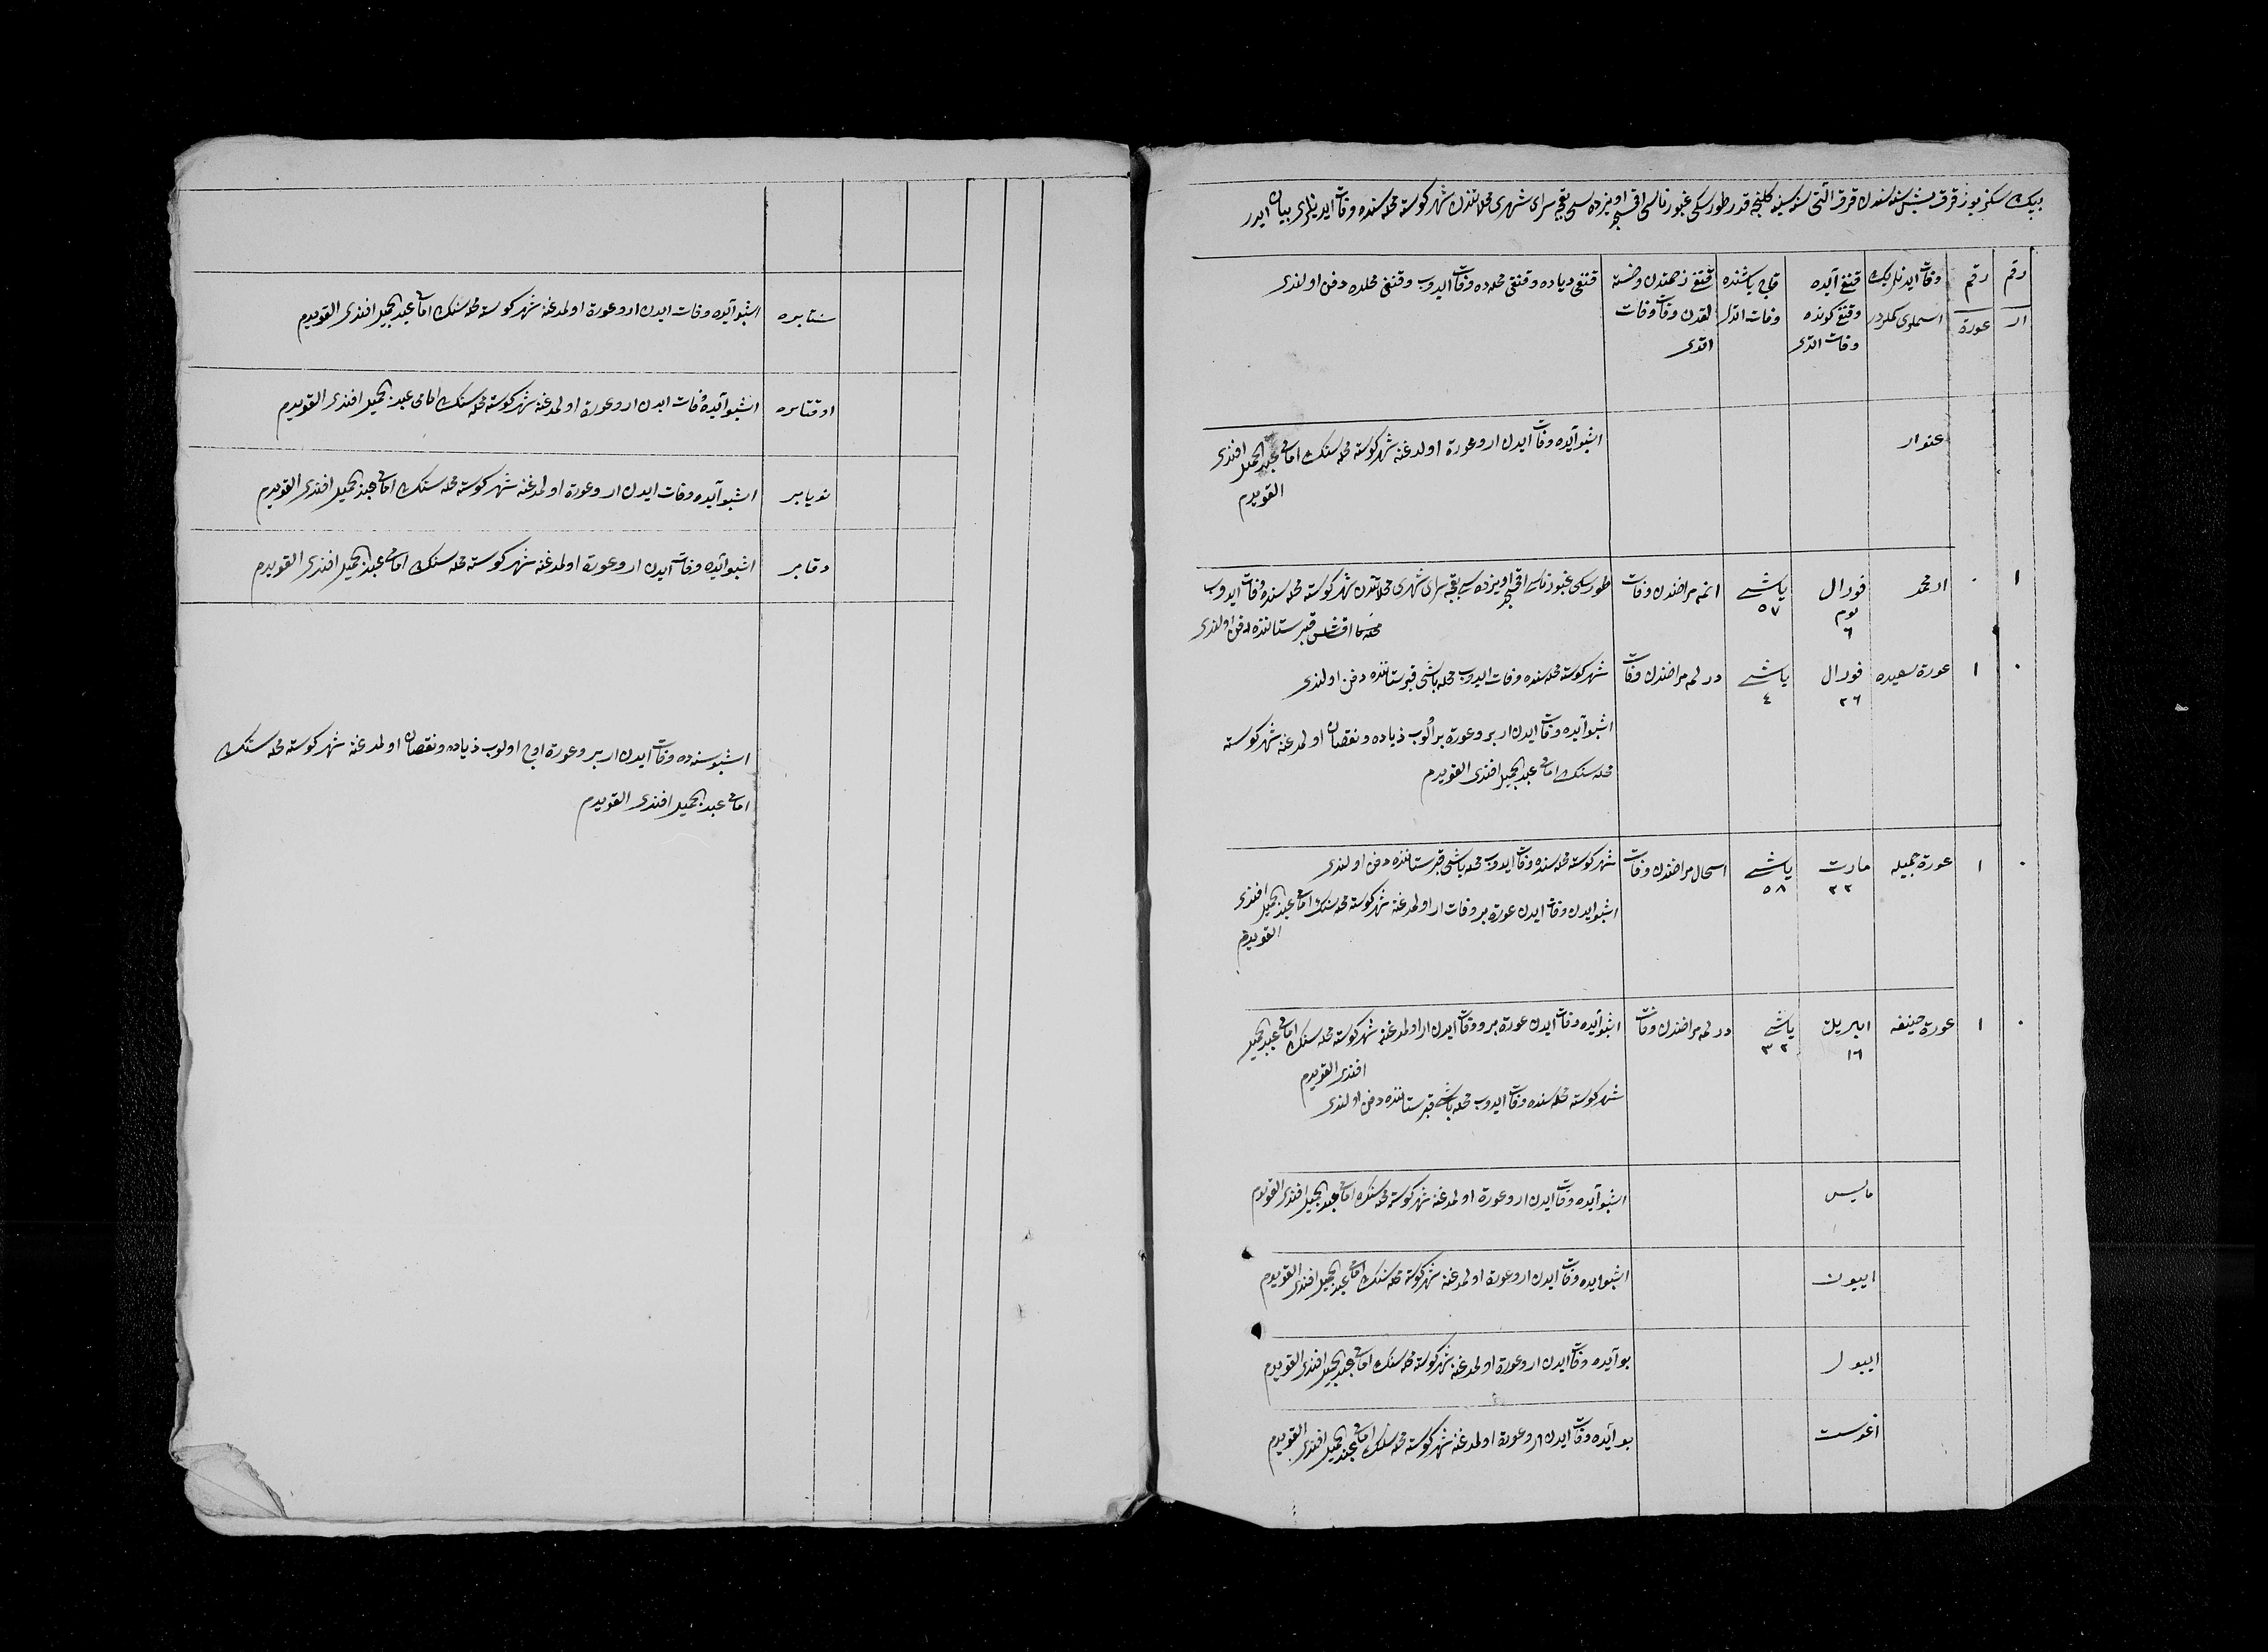 بيك سكز يوز قرق بش سنه سندن قرق التى سنه سينه كلنجه قدر طورسكى غبورناسى اقمجر اويزده سى بقچه سراى شهرى محلاتندن شهر كوسته محله سنده وفات ايدنلرى بيان ايدر
رقم ار
رقم عورة
وفات ايدنلرينك اسملرى كملردر
قنغى آيده وقنغى كونده وفات اتدى
قاچ ياشنده وفات اتدى
قنغى زحمتدن وخسته لقدن وفات وفات اتدى
قنغى دياده وقنغى محله ده وفات ايدوب وقنغى محلده دفن اولندى
عنوار
اشبو آيده وفات ايدن ار وعورة اولمدغنه شهر كوسته محله سنك امامى عبد الجميل افندى
القويدم
١ ٠ ار محمد
فورال يوم ٦
ياشى ٥٧
مراضندن وفات
طورسكى غبورناسى اقمجر اويزده سى بقچه سراى شهرى محلاتندن شهر كوسته محله سنده وفات ايدوب
قبرستاننده دفن اولندى
٠ ١ عورة سعيده
فورال ٢٦
ياشى ٤
درلمه مراضندن وفات
شهر كوسته محله سنده وفات ايدوب محله باشى قبرستاننده دفن اولندى
اشبو آيده وفات ايدن ار بر وعورة بر الوب ذياده ونقصان اولمدغنه شهر كوسته
محله سنك امامى عبد الجميل افندى القويدم
٠ ١ عورة جميله
مارت ٢٢
ياشى ٥٨
اسحال مراضندن وفات
شهر كوسته محله سنده وفات ايدوب محله باشى قبرستاننده دفن اولندى
اشبو ايدن وفات ايدن عورة بر وفات ار اولمدغنه شهر كوسته محله سنك امامى عبد الجميل افندى
القويدم
٠ ١ عورة حنيفه
ابريل ١٦
ياشى ٣٢
درلمه مراضندن وفات
اشبو آيده وفات ايدن عورة بر ووفات ايدن ار اولمدغنه شهر كوسته محله سنك امامى عبد الجميل
افندى القويدم
شهر كوسته محله سنده وفات ايدوب محله باشى قبرستاننده دفن اولندى
مايس
اشبو آيده وفات ايدن ار وعورة اولمدغنه شهر كوسته محله سنك امامى عبد الجميل افندى القويدم
ايبون
اشبو ايده وفات ايدن ار وعورة اولمدغنه شهر كوسته محله سنك امامى عبد الجميل افندى القويدم
ايبول
بو آيده وفات ايدن ار وعورة اولمدغنه شهر كوسته محله سنك امامى عبد الجميل افندى القويدم
اغوست
بو آيده وفات ايدن ار وعورة اولمدغنه شهر كوسته محله سنك امامى عبد الجميل افندى القويدم
سنتابره
اشبو آيده وفات ايدن ار وعورة اولمدغنه شهر كوسته محله سنك امامى عبد الجميل افندى القويدم
اوقتابره
اشبو آيده وفات ايدن ار وعورة اولمدغنه شهر كوسته محله سنك امامى عبد الجميل افندى القويدم
نويابر
اشبو آيده وفات ايدن ار وعورة اولمدغنه شهر كوسته محله سنك امامى عبد الجميل افندى القويدم
دقابر
اشبو آيده وفات ايدن ار وعورة اولمدغنه شهر كوسته محله سنك امامى عبد الجميل افندى القويدم
اشبو سنه ده وفات ايدن ار بر وعورة اوچ اولوب ذياده ونقصان اولمدغنه شهر كوسته محله سنك
امامى عبد الجميل افندى القويدم